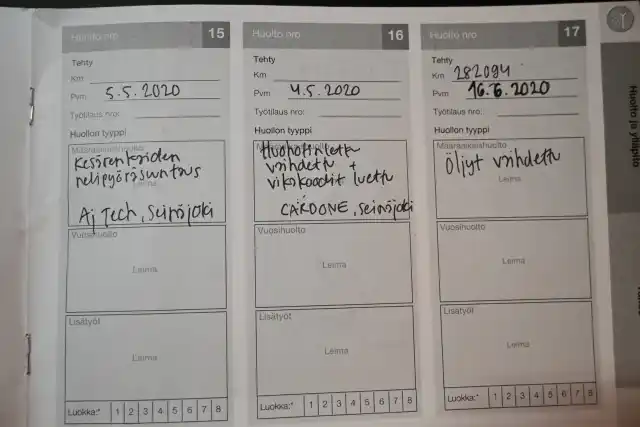 Huolto nro 15
Tehty
Km
Pvm 5.5.2020
Työtilaus nro:
Huollon tyyppi
Määräaikaishuolto
Kesärenkaiden
nelipyöräsuuntaus
Leima
Aj Tech, Seinäjoki
Vuosihuolto
Leima
Lisätyöt
Leima
Luokka:* 1 2 3 4 5 6 7 8
Huolto nro 16
Tehty
Km
Pvm 4.5.2020
Työtilaus nro:
Huollon tyyppi
vaihdettu +
vikakoodit luettu
CARDONE, Seinäjoki
Vuosihuolto
Leima
Lisätyöt
Leima
Luokka:* 1 2 3 4 5 6 7 8
Huolto nro 17
Tehty
Km 282094
Pvm 16.6.2020
Työtilaus nro:
Huollon tyyppi
Määräaikaishuolto
Öljyt vaihdettu
Leima
Vuosihuolto
Leima
Lisätyöt
Leima
Luokka:* 1 2 3 4 5 6 7 8
Huolto ja ylläpito